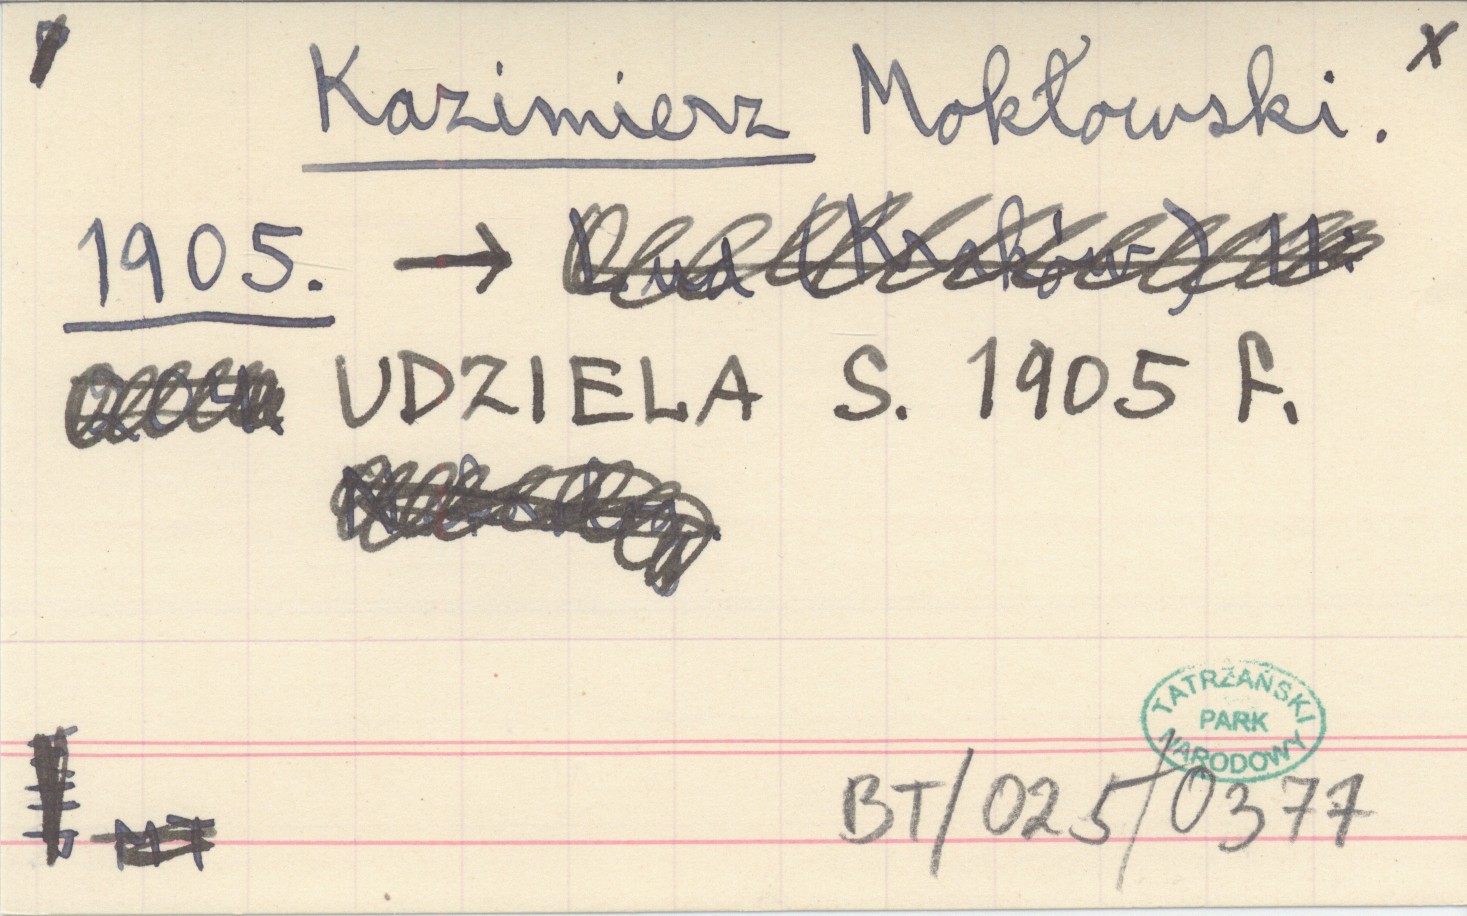 Kazimierz Mokłowski. x
1905. → Lud (Kraków) 11.
UDZIELA S. 1905 F.
TATRZAŃSKI
PARK
NARODOWY
MT
BT/025/0377